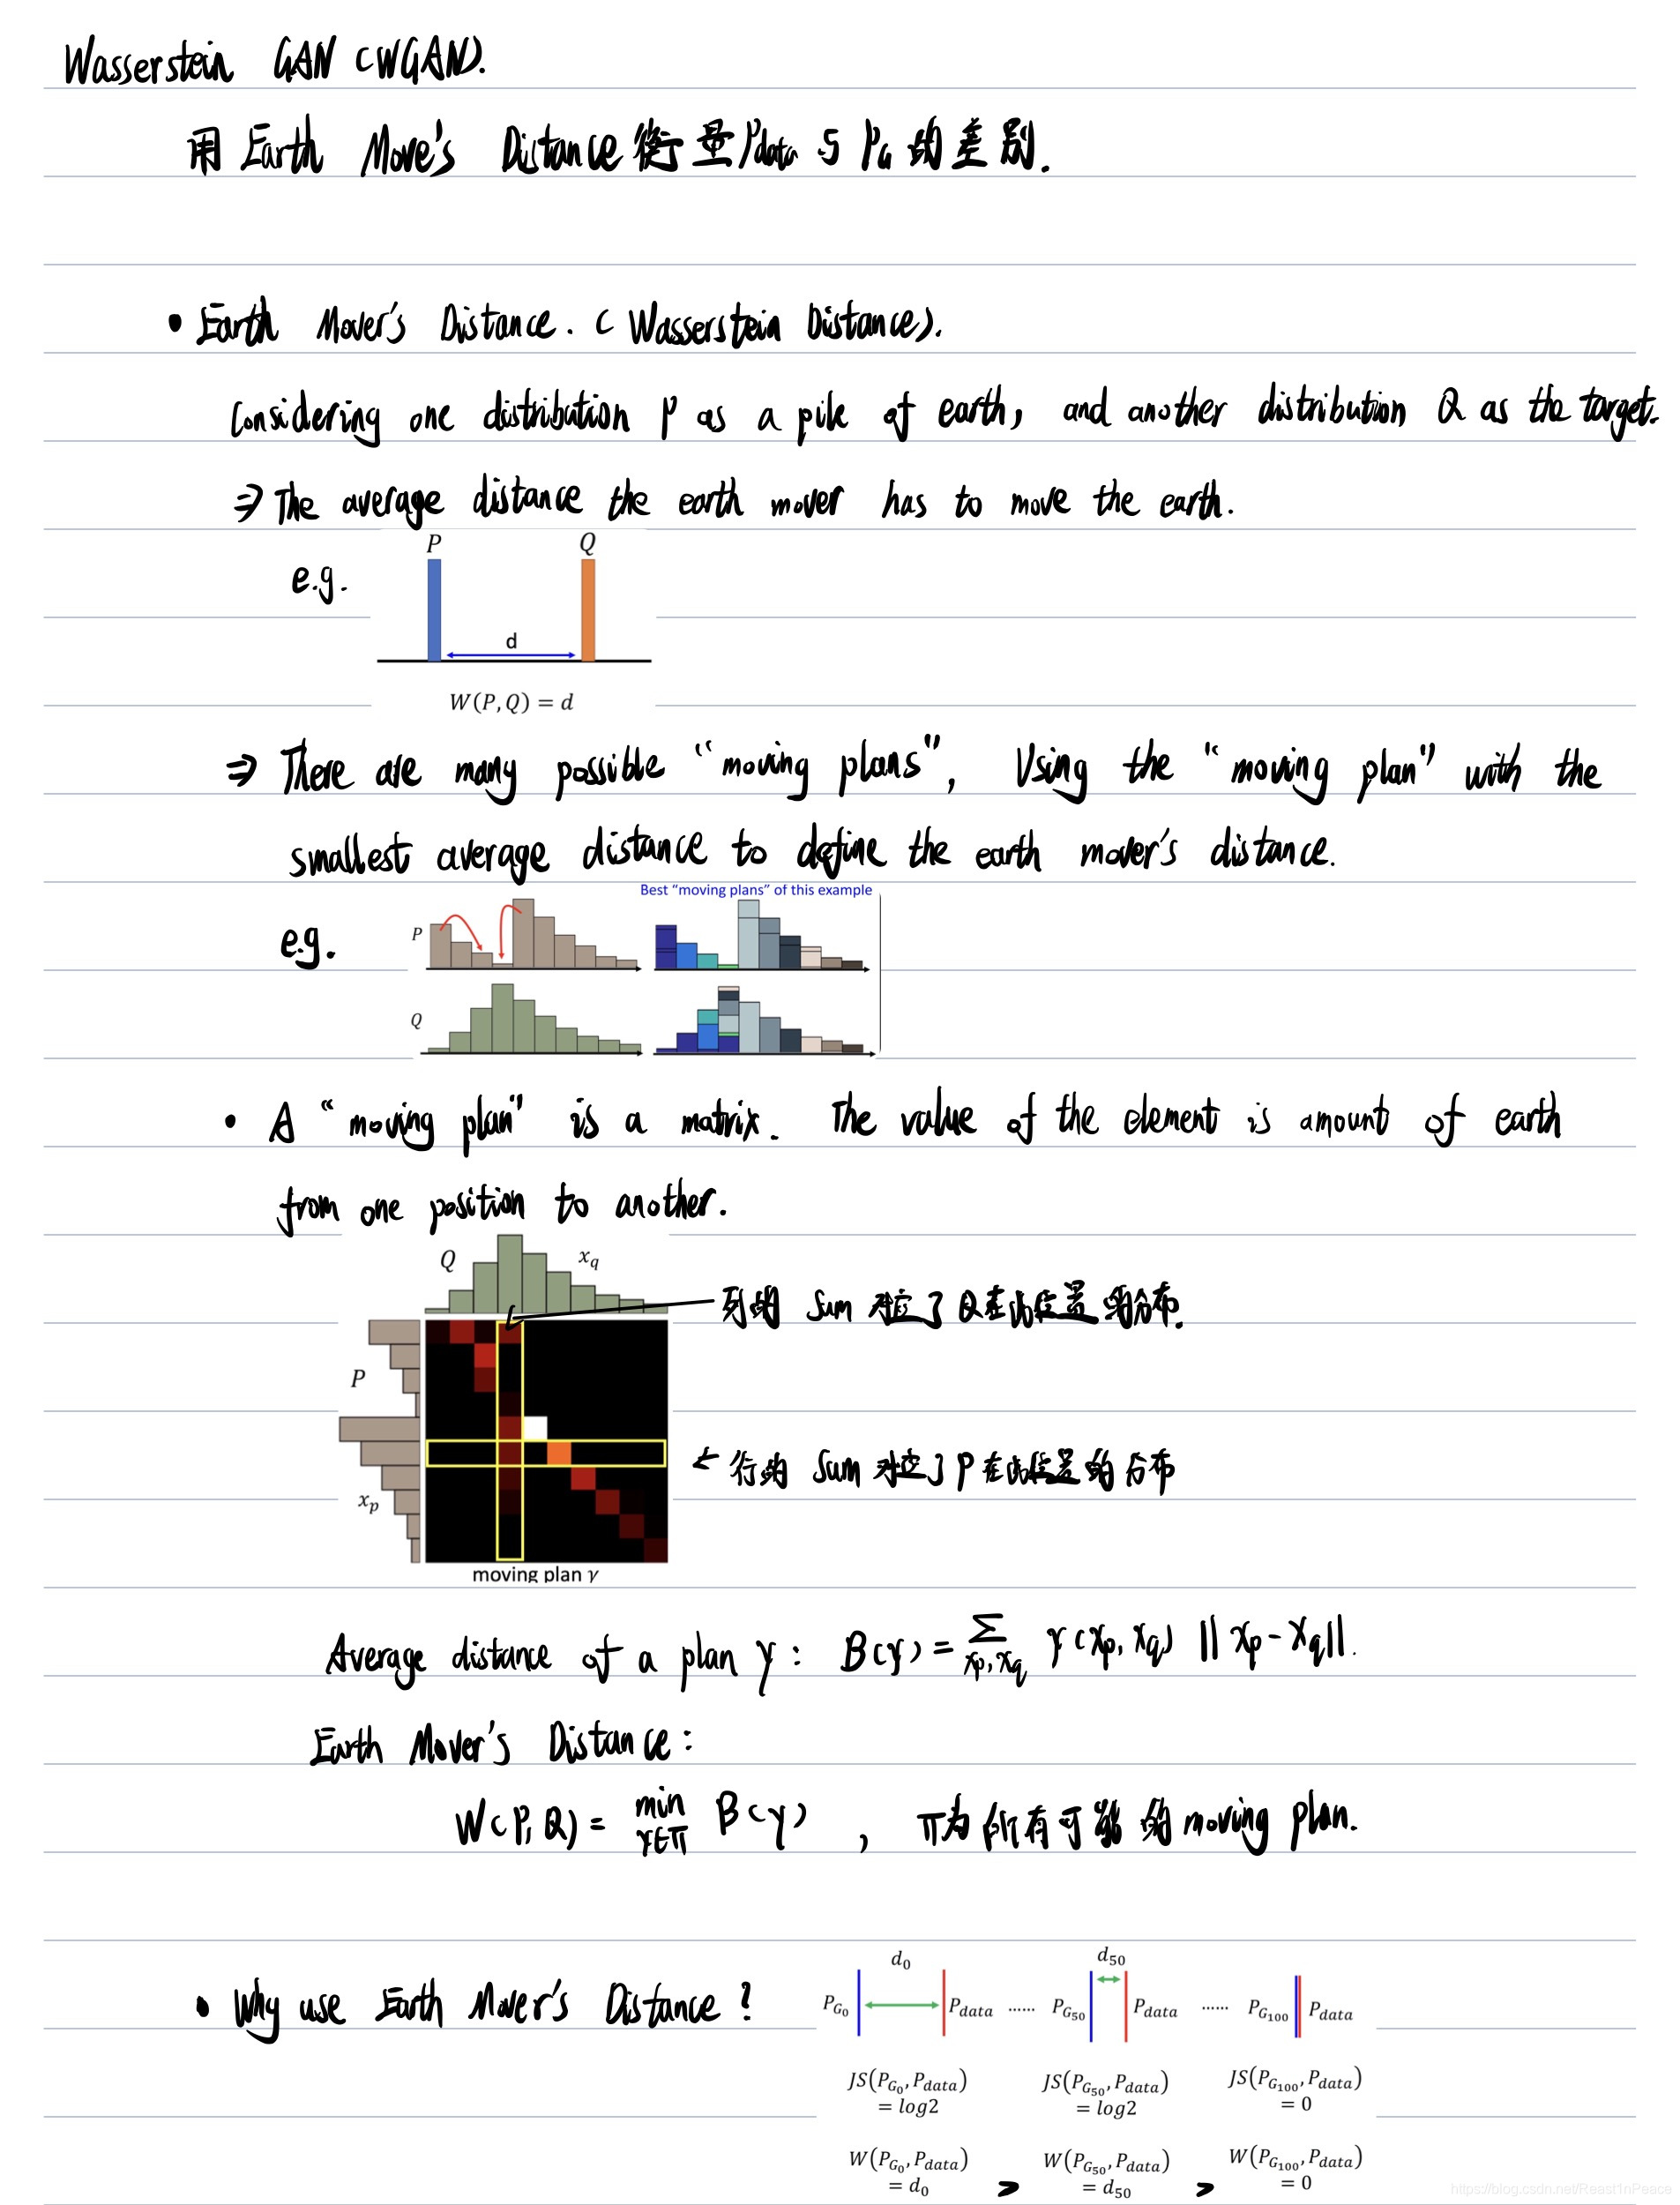 Wasserstein GAN (WGAN).
用 Earth Move's Distance 衡量 Pdata 与 PG 的差别.
• Earth Mover's Distance. (Wasserstein Distance).
Considering one distribution P as a pile of earth, and another distribution Q as the target.
⇒ The average distance the earth mover has to move the earth.
e.g.
P Q
d
W(P,Q) = d
⇒ There are many possible “moving plans”, Using the “moving plan” with the
smallest average distance to define the earth mover's distance.
Best “moving plans” of this example
e.g.
P
Q
• A “moving plan” is a matrix. The value of the element is amount of earth
from one position to another.
Q x_q
列的 Sum 对应了 Q 在此位置的分布.
P
← 行的 Sum 对应了 P 在此位置的分布
x_p
moving plan γ
Average distance of a plan γ: B(γ) = Σ_{x_p, x_q} γ(x_p, x_q) ||x_p - x_q||.
Earth Mover's Distance:
W(P,Q) = min_{γ∈Π} B(γ) , Π为所有可能的 moving plan.
d_0 d_50
• Why use Earth Mover's Distance?
P_{G_0} P_data …… P_{G_50} P_data …… P_{G_100} P_data
JS(P_{G_0}, P_data) JS(P_{G_50}, P_data) JS(P_{G_100}, P_data)
= log2 = log2 = 0
W(P_{G_0}, P_data) W(P_{G_50}, P_data) W(P_{G_100}, P_data)
= d_0 > = d_50 > = 0
https://blog.csdn.net/Reast1nPeace